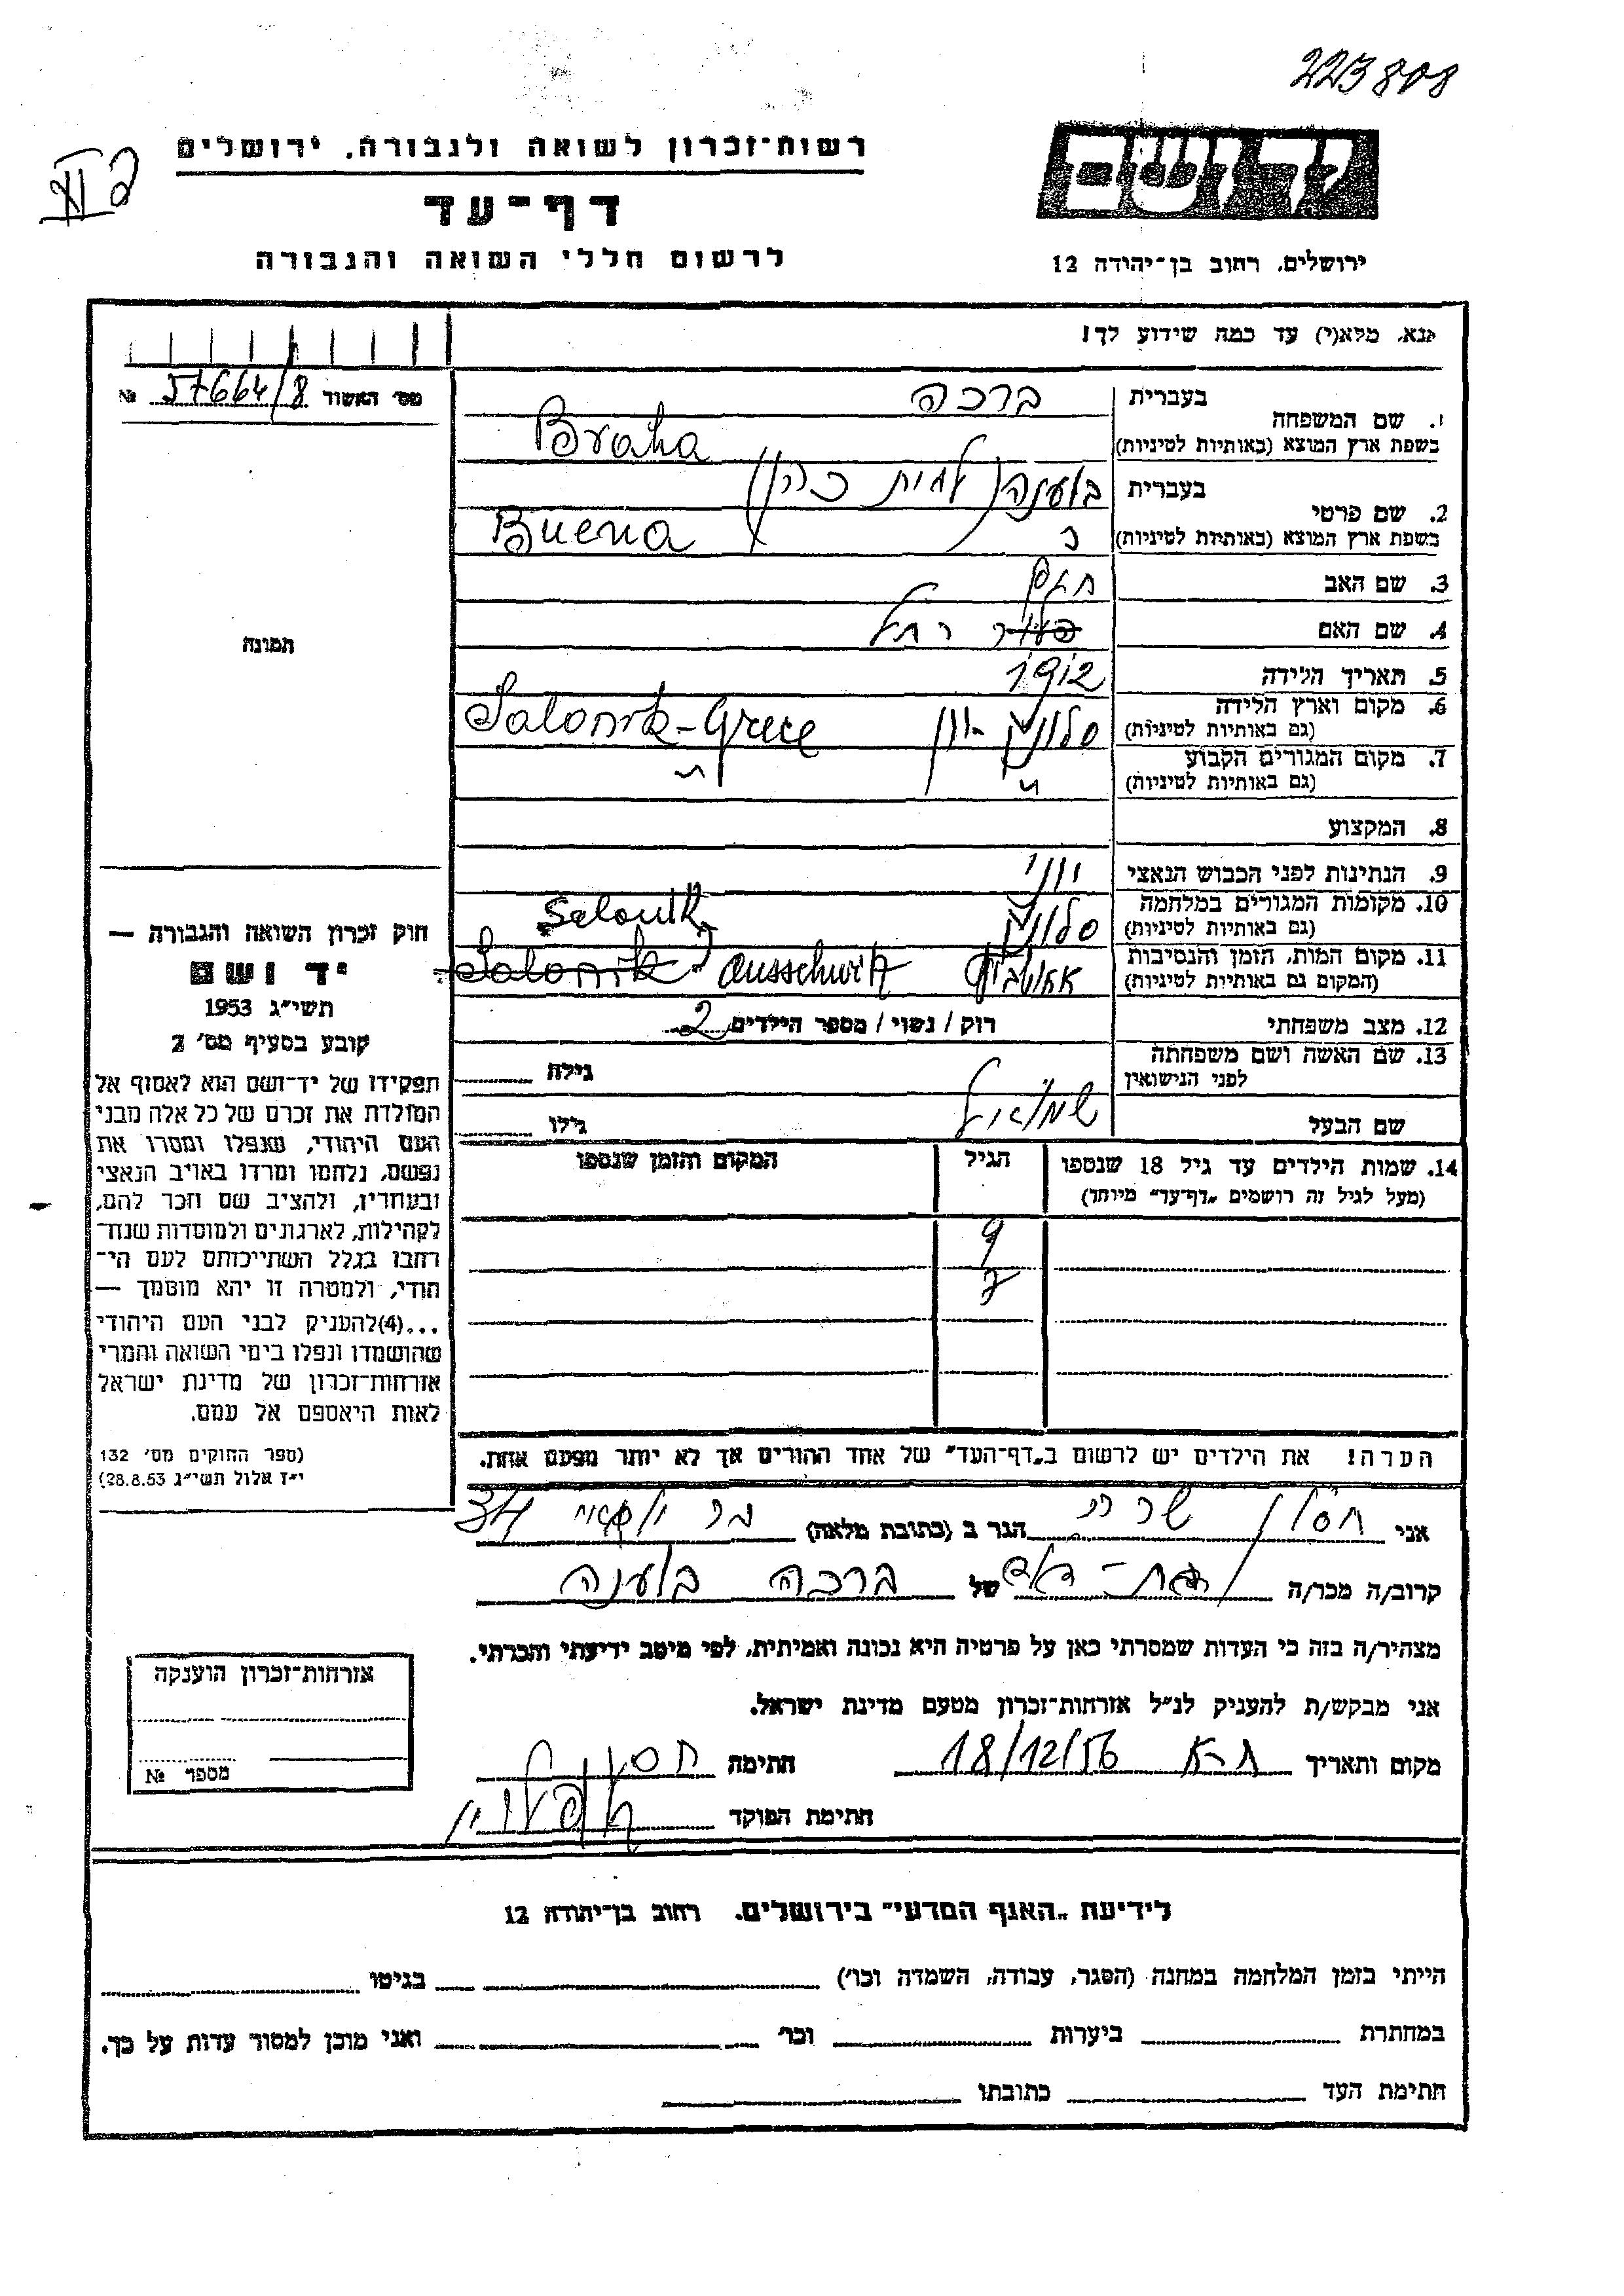 223808
רשות־זכרון לשואה ולגבורה, ירושלים
דף־עד
לרשום חללי השואה והגבורה
ירושלים, רחוב בן־יהודה 12
נא, מלא(י) עד כמה שידוע לך!
מס׳ האשור 57664/8 №
1. שם המשפחה בעברית ברכה
בשפת ארץ המוצא (באותיות לטיניות) Braha
2. שם פרטי בעברית בוענה (לבית כהן)
בשפת ארץ המוצא (באותיות לטיניות) Buena
3. שם האב חיים
4. שם האם רחל
5. תאריך הלידה 1912
6. מקום וארץ הלידה סלוניק - יון Salonik-Grece
(גם באותיות לטיניות)
7. מקום המגורים הקבוע
(גם באותיות לטיניות)
8. המקצוע
9. הנתינות לפני הכבוש הנאצי יווני
10. מקומות המגורים במלחמה סלוניק Salonik
(גם באותיות לטיניות)
11. מקום המות, הזמן והנסיבות Salonik Ausschwitz
(המקום גם באותיות לטיניות)
12. מצב משפחתי רוק / נשוי / מספר הילדים 2
13. שם האשה ושם משפחתה גילה
לפני הנישואין
שם הבעל שמואל גילו
14. שמות הילדים עד גיל 18 שנספו הגיל המקום והזמן שנספו
(מעל לגיל זה רושמים „דף־עד״ מיוחד)
9
7
הערה! את הילדים יש לרשום ב„דף־העד״ של אחד ההורים אך לא יותר מפעם אחת.
תמונה
חוק זכרון השואה והגבורה —
יד ושם
תשי״ג 1953
קובע בסעיף מס׳ 2
תפקידו של יד־ושם הוא לאסוף אל
המולדת את זכרם של כל אלה מבני
העם היהודי, שנפלו ומסרו את
נפשם, נלחמו ומרדו באויב הנאצי
ובעוזריו, ולהציב שם וזכר להם,
לקהילות, לארגונים ולמוסדות שנח־
רבו בגלל השתייכותם לעם הי־
הודי, ולמטרה זו יהא מוסמך —
...(4) להעניק לבני העם היהודי
שהושמדו ונפלו בימי השואה והמרי
אזרחות־זכרון של מדינת ישראל
לאות היאספם אל עמם.
(ספר החוקים מס׳ 132
י״ז אלול תשי״ג 28.8.53)
אני חסון הגר ב (כתובת מלאה) 34
קרוב/ה מכר/ה בת-דוד של ברכה בוענה
מצהיר/ה בזה כי העדות שמסרתי כאן על פרטיה היא נכונה ואמיתית, לפי מיטב ידיעתי והכרתי.
אני מבקש/ת להעניק לנ״ל אזרחות־זכרון מטעם מדינת ישראל.
מקום ותאריך ת-א 18/12/56 חתימה
חתימת הפוקד
אזרחות־זכרון הוענקה
מספר №
לידיעת „האגף המדעי״ בירושלים, רחוב בן־יהודה 12
הייתי בזמן המלחמה במחנה (הסגר, עבודה, השמדה וכו׳) בגיטו
במחתרת ביערות וכו׳ ואני מוכן למסור עדות על כך.
חתימת העד כתובתו